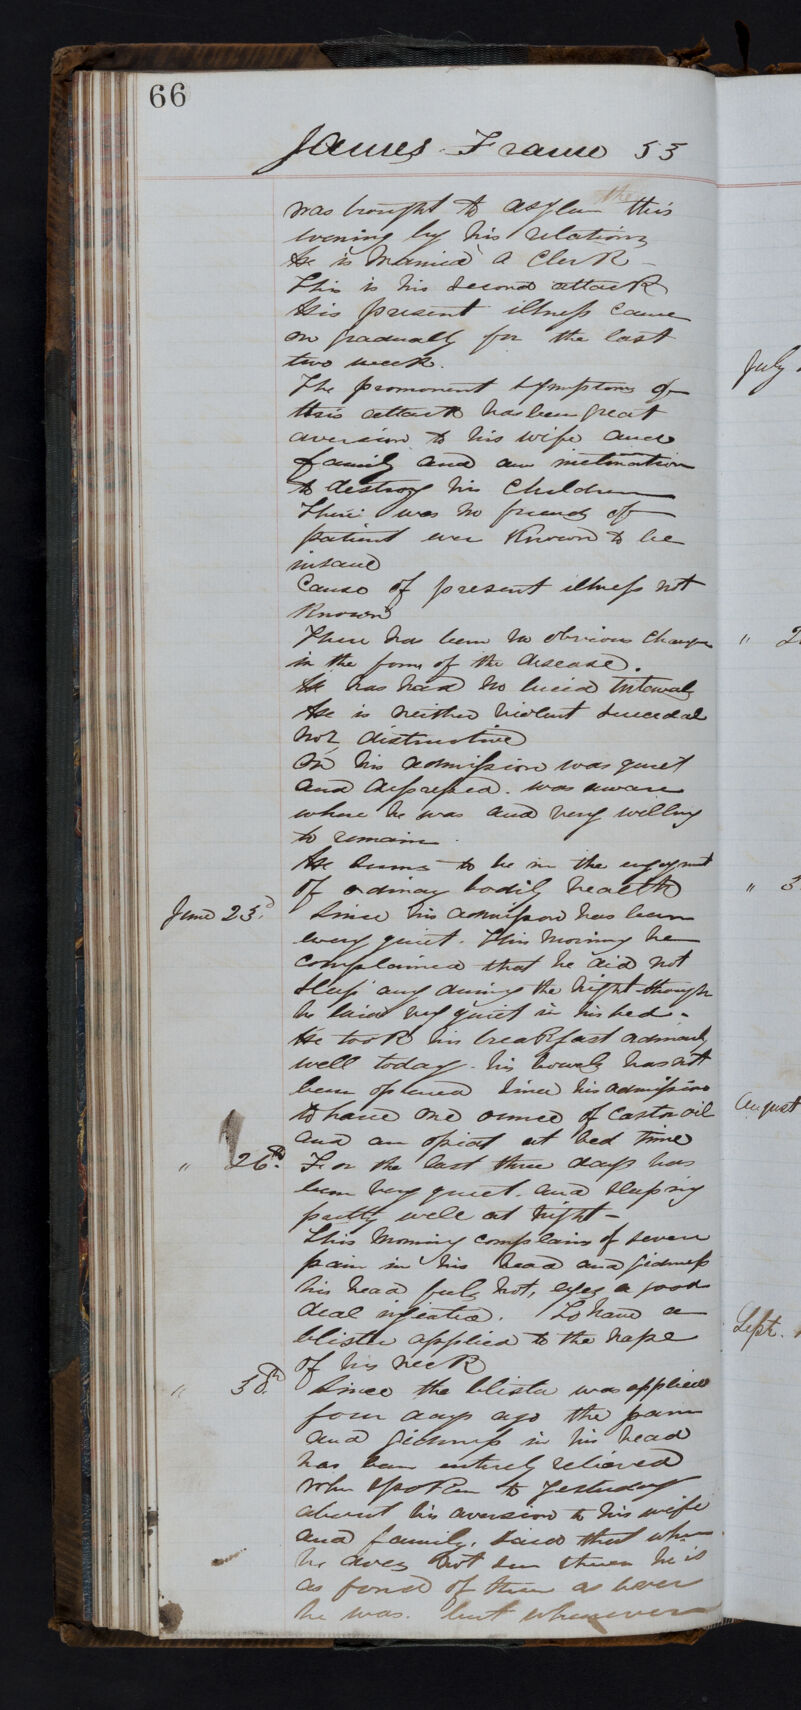 66
James Frame 53
was brought to asylum this
evening by his relations
He is Married a Clerk
This is his second attack
His present illness came
on gradually for the last
two week.
The promonent symptoms of
this attack has been great
aversion to his wife and
family and an inclination
to destroy his Children
There was no friends of
patient ever Known to be
insane
Cause of present illness not
Known
There has been no obvious change
in the form of the disease.
He has had no lucid Intervals
He is neither violent suicedal
nor distructive
On his admission was quiet
and depressed. was aware
where he was and very willing
to remain.
He seems to be in the enjoyment
of ordinary bodily health
June 23d. Since his admission has been
very quiet. This morning he
complained that he did not
sleep any during the night though
he laid very quiet in his bed -
He took his breakfast
well today. his bowels has not
been opened since his admission
to have one ounce of Castor oil
and an opiat at bed time
" 26th. For the last three days has
been very quiet. and sleeping
pretty well at night -
This Morning complains of severe
pain in his head and gidness
his head feels hot, eyes a good
deal injected. To have a
blister applied to the nape
of his neck
" 30th Since the blister was applied
four days ago the pain
and gidness in his head
has been entirely relieved
when spoken to yesterday
about his aversion to his wife
and family, said that when
he does not see them he is
as fond of them as ever
he was. but whenever
July
" 2
" 3
August
Sept.